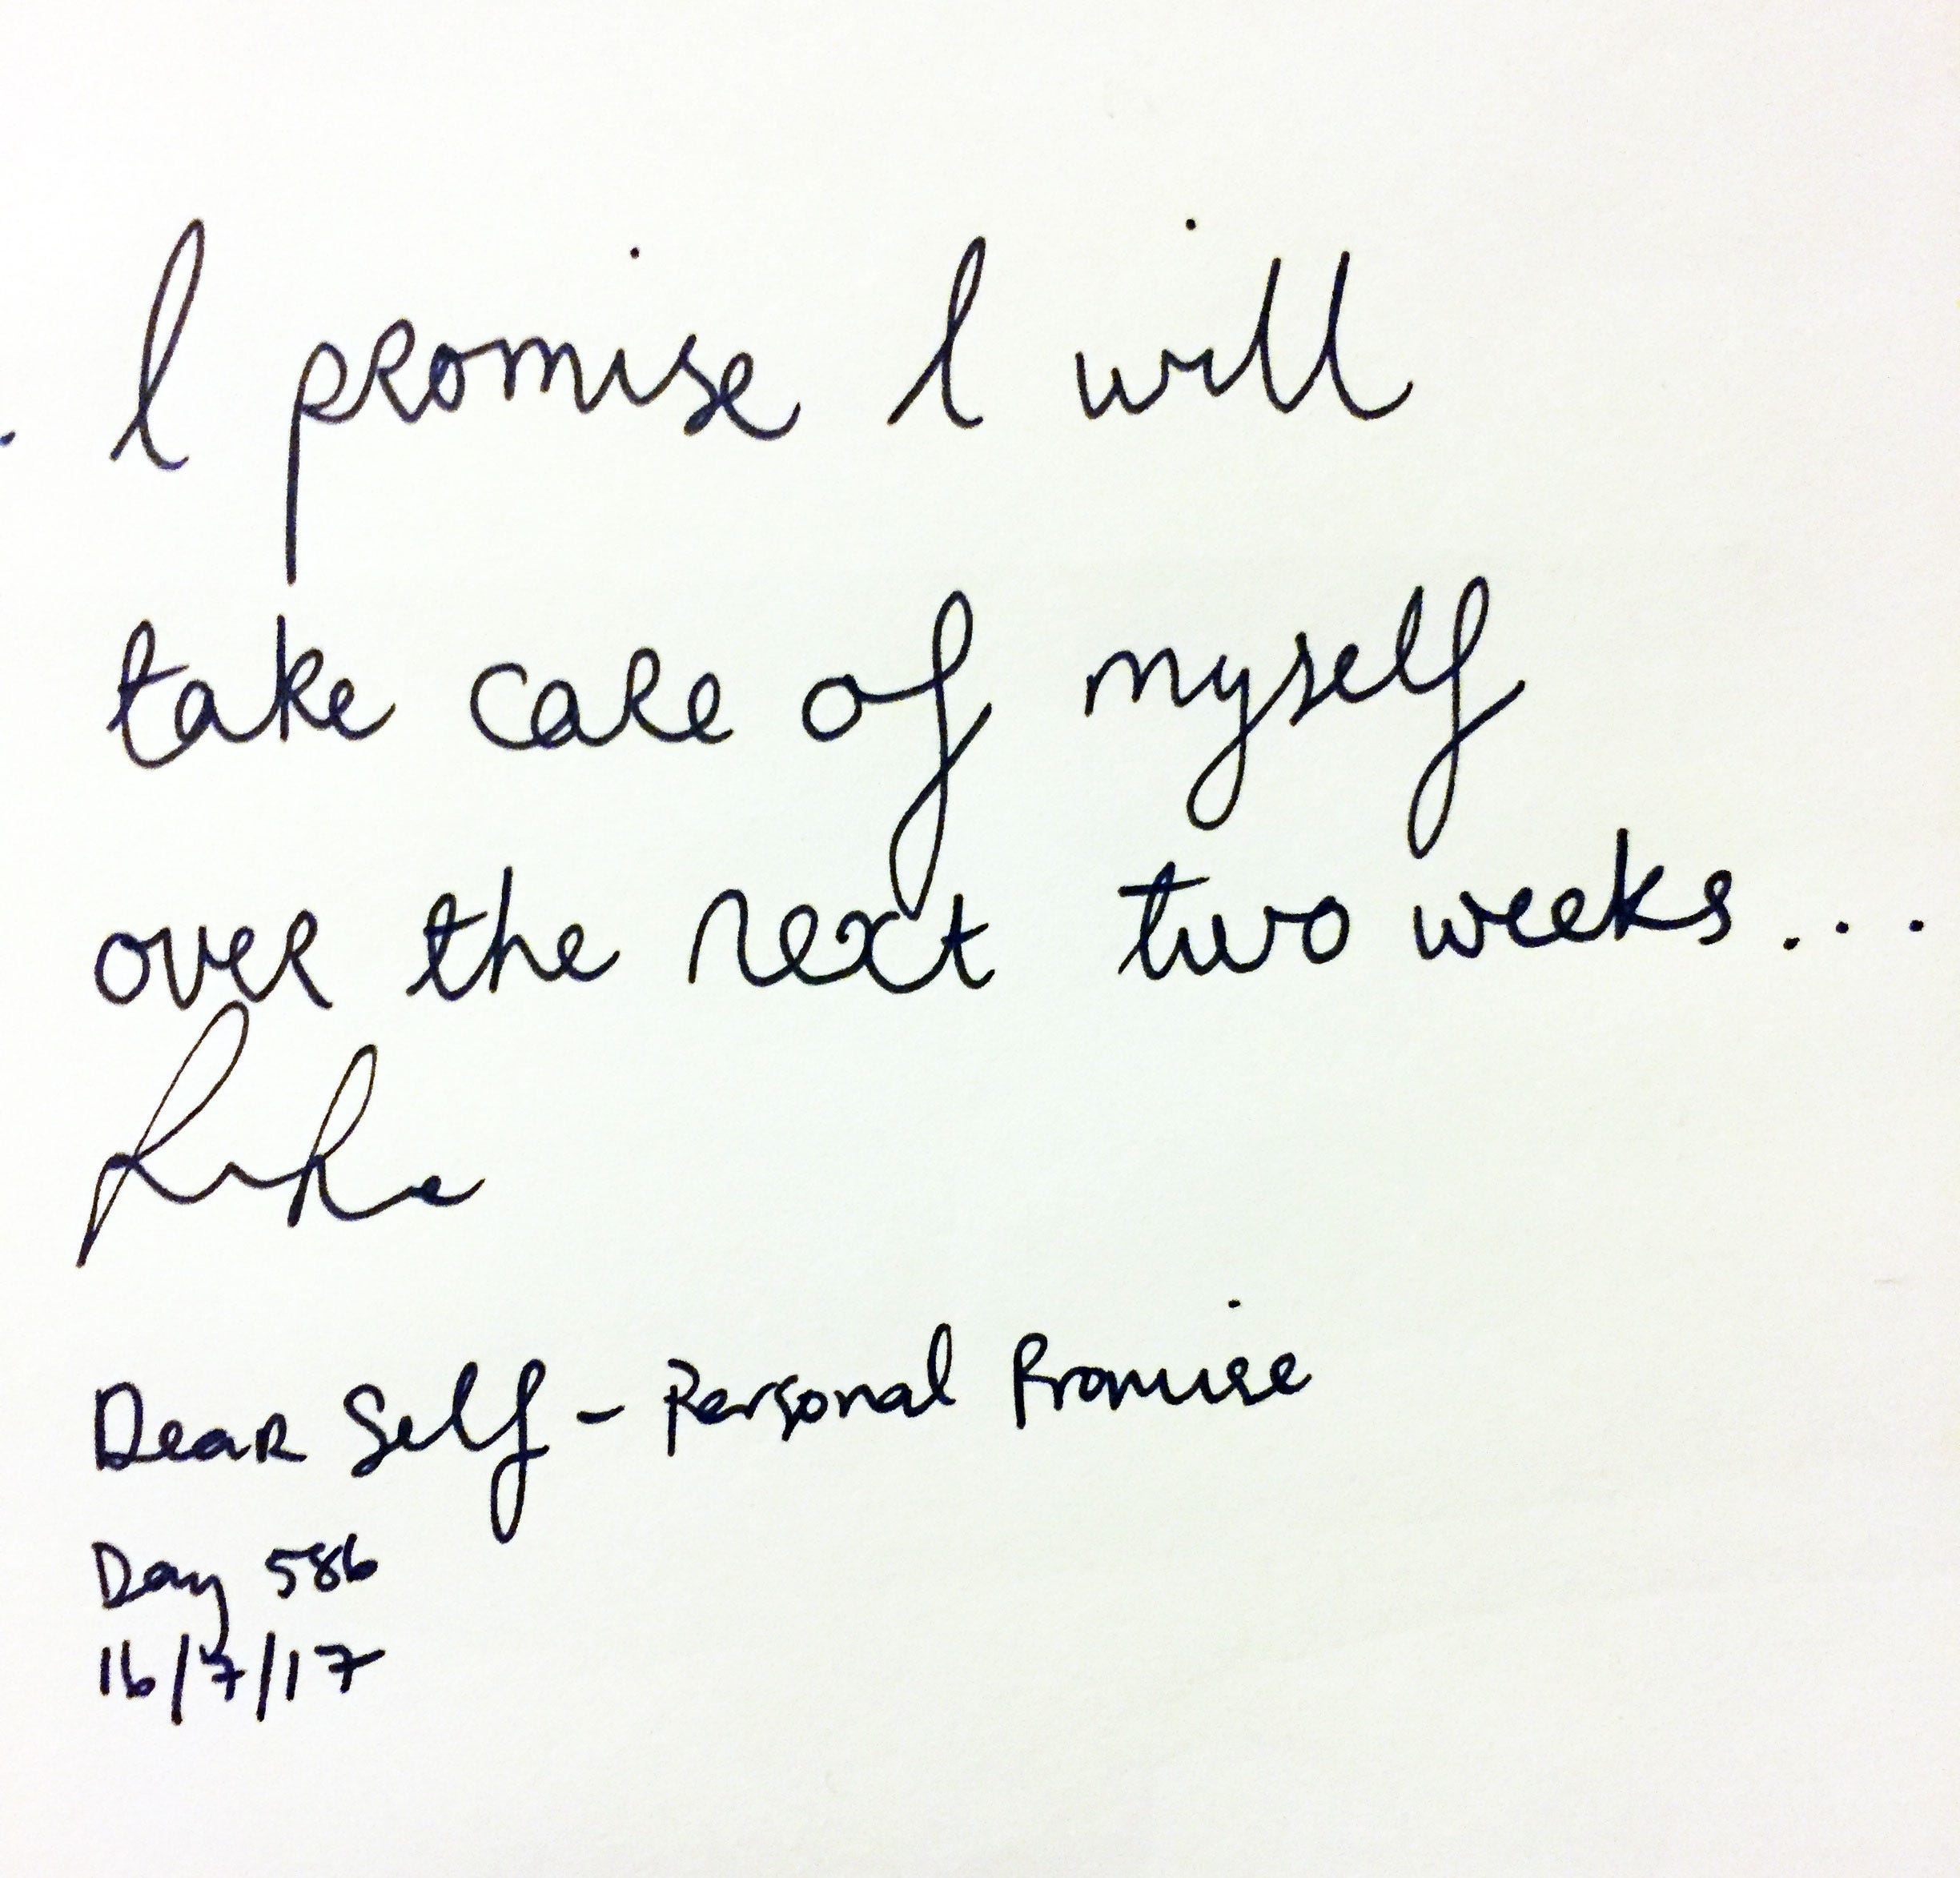 I promise I will
take care of myself
over the next two weeks...
Dear Self - Personal Promise
Day 586
16/7/17